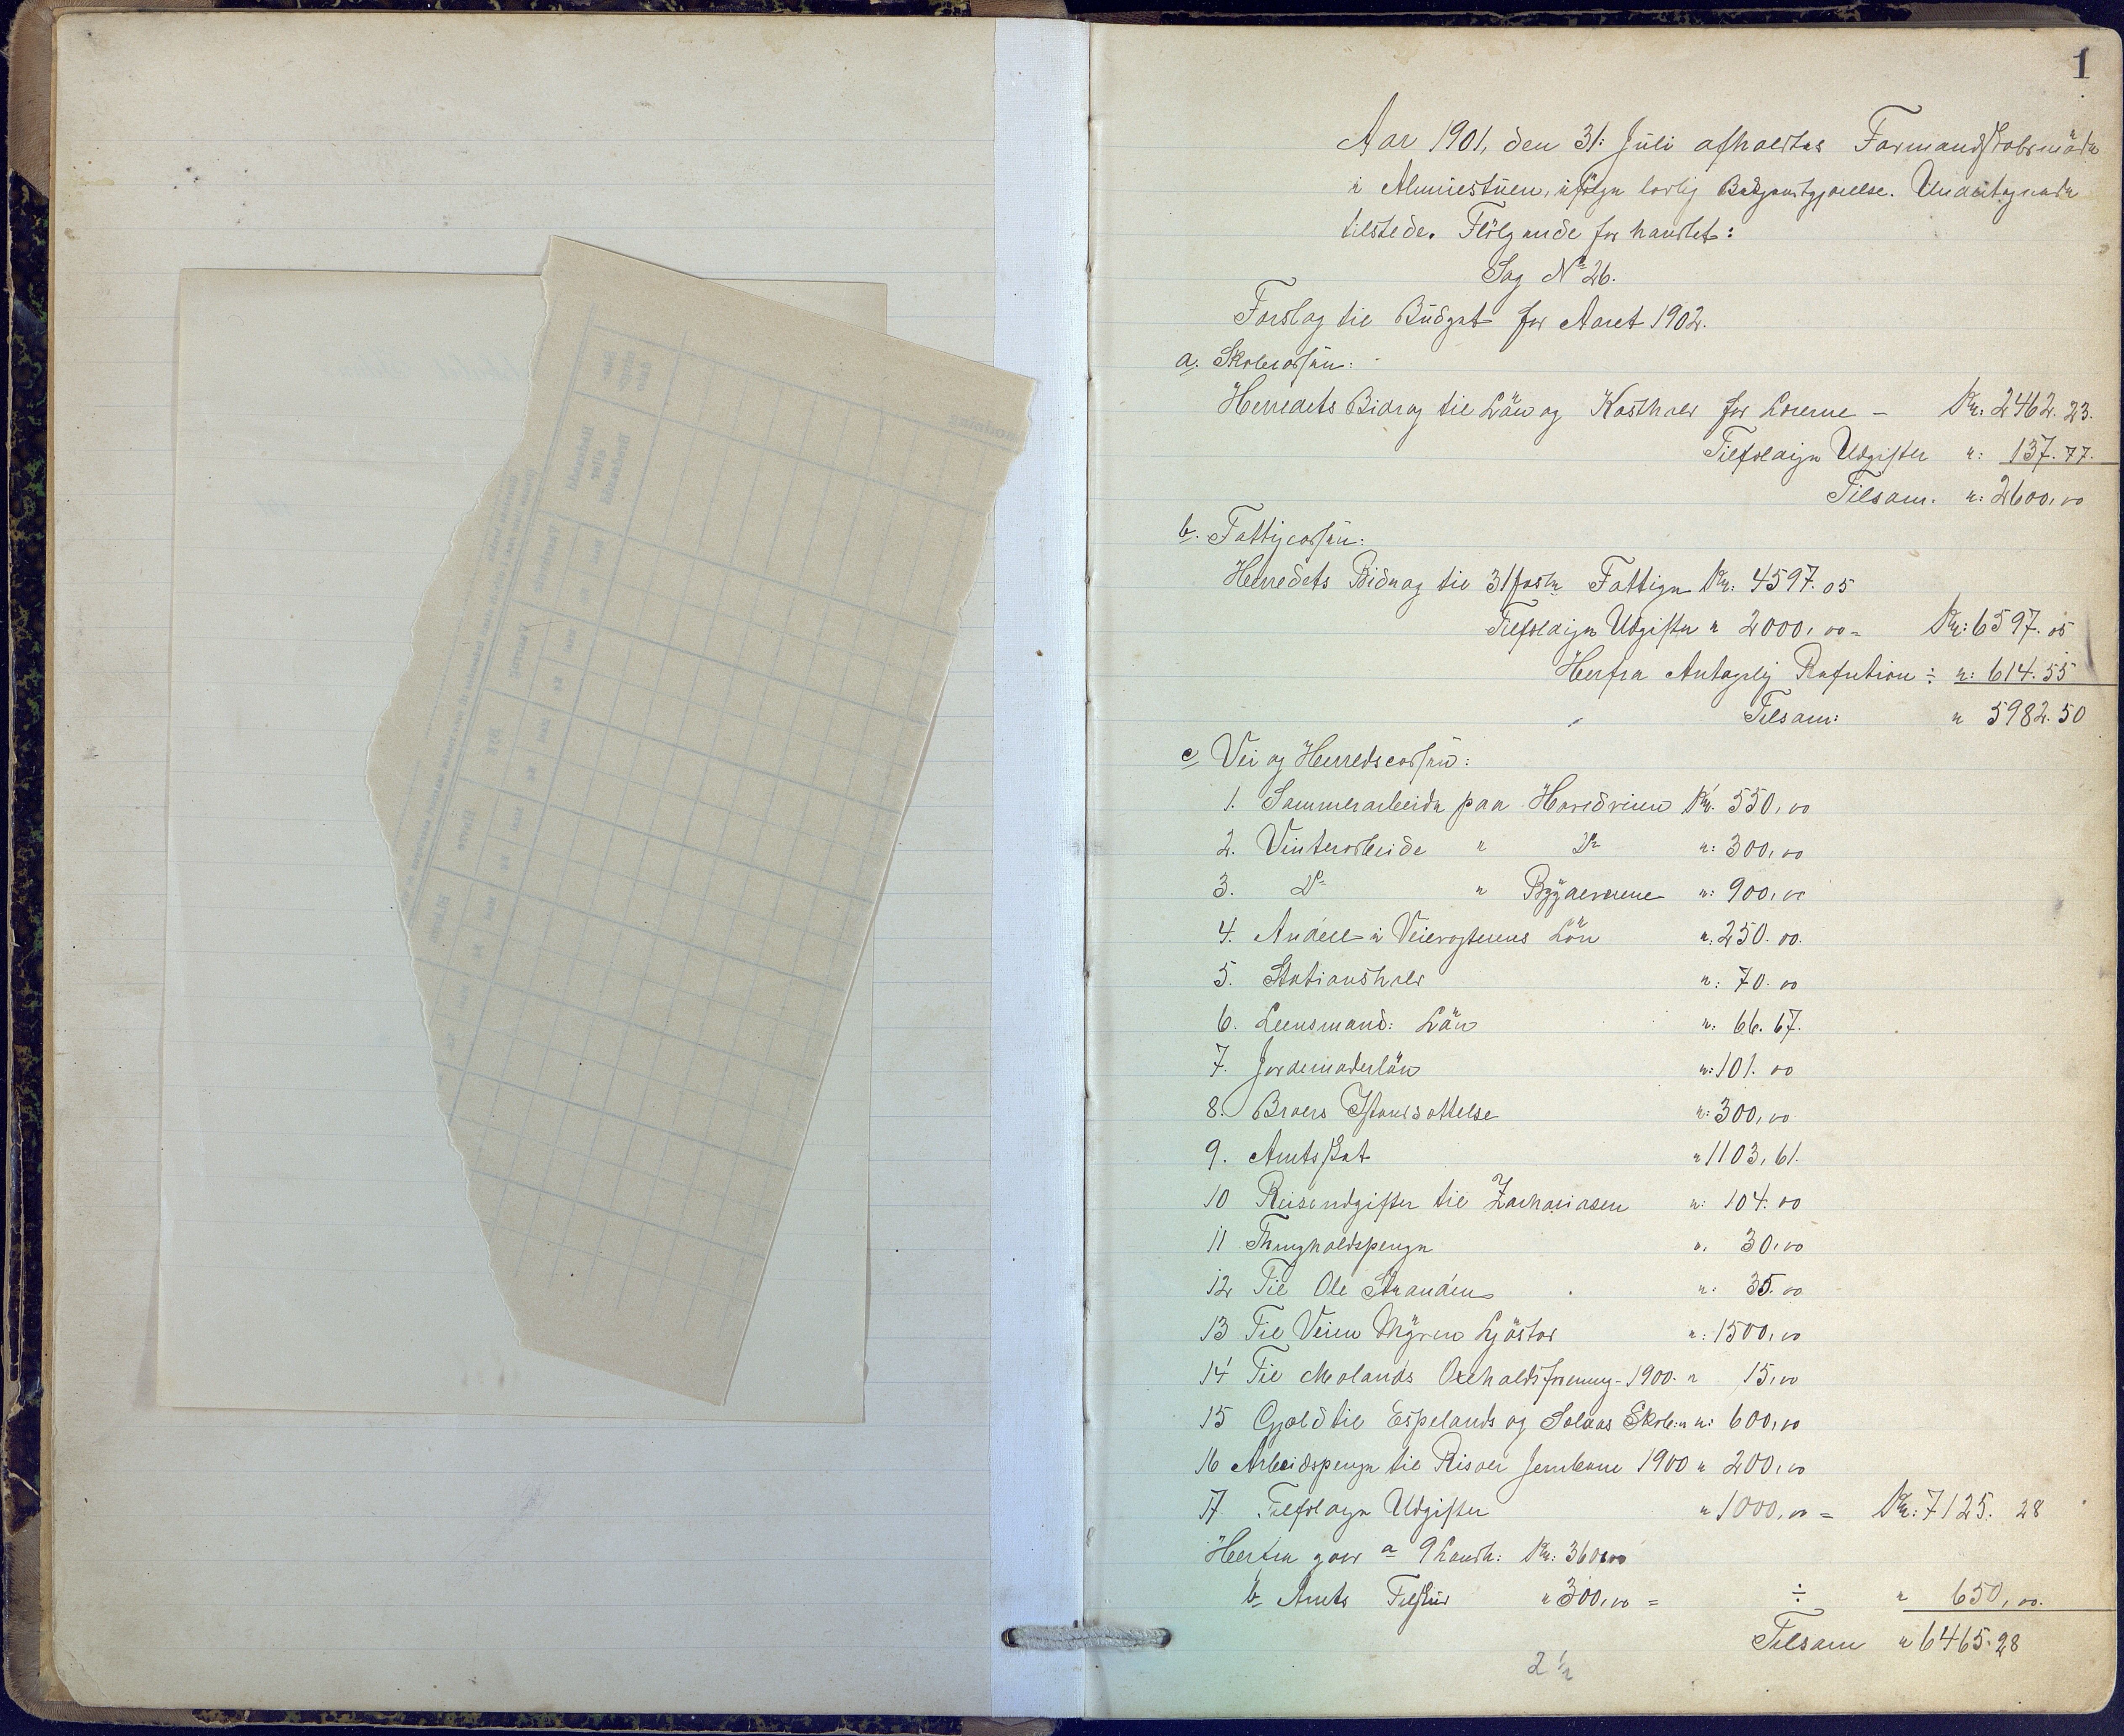 1
Aar 1901, den 31: Juli afholdtes Formandskabsmöde
i Almuestuen, ifölge lovlig Bekjendtgjörelse. Undertegnede
tilstede. Fölgende forhandlet:
Sag No 26.
Forslag til Budget for Aaret 1902.
a. Skolecassen:
Herredets Bidrag til Lön og Kosthold for Lærerne - Kr: 2462.23.
Tilfeldige Udgifter " : 137.77.
Tilsam. " : 2600,00
b. Fattigcassen:
Herredets Bidrag til 31 faste Fattige Kr: 4597.05
Tilfeldige Udgifter " 2000,00 = Kr: 6597.05
Herfra Antagelig Refution ÷ " : 614.55
Tilsam: " 5982.50
c Vei og Herredscassen:
1. Sommerarbeide paa Hovedveien Kr. 550,00
2. Vinterarbeide " Do " : 300,00
3. Do " Bygdeveiene " : 900,00
4. Andel i Veivogternes Lön " : 250.00.
5. Stationshold " : 70.00
6. Leensmand: Lön " : 66.67.
7. Jordemoderlön " : 101.00
8. Broers Istandsættelse " : 300,00
9. Amtsskat " 1103,61.
10 Reiseudgifter til Zachariasen " : 104.00
11 Thingholdspenge " . 30,00
12 Til Ole Stranden " : 35.00
13 Til Veien Myren Ljöstad " : 1500,00
14 Til Molands Oxeholdsforening - 1900. " 15,00
15 Gjæld til Espelands og Solaas Skole: " : 600,00
16 Arbeidspenge til Risöer Jernbane 1900 " 200,00
17. Tilfeldige Udgifter " 1000,00 = Kr: 7125.28
Herfra gaar a 9 Landh: Kr: 360,00
b Amts Tilskud " 300,00 = ÷ " 650,00.
Tilsam " 6465.28
2 1/2